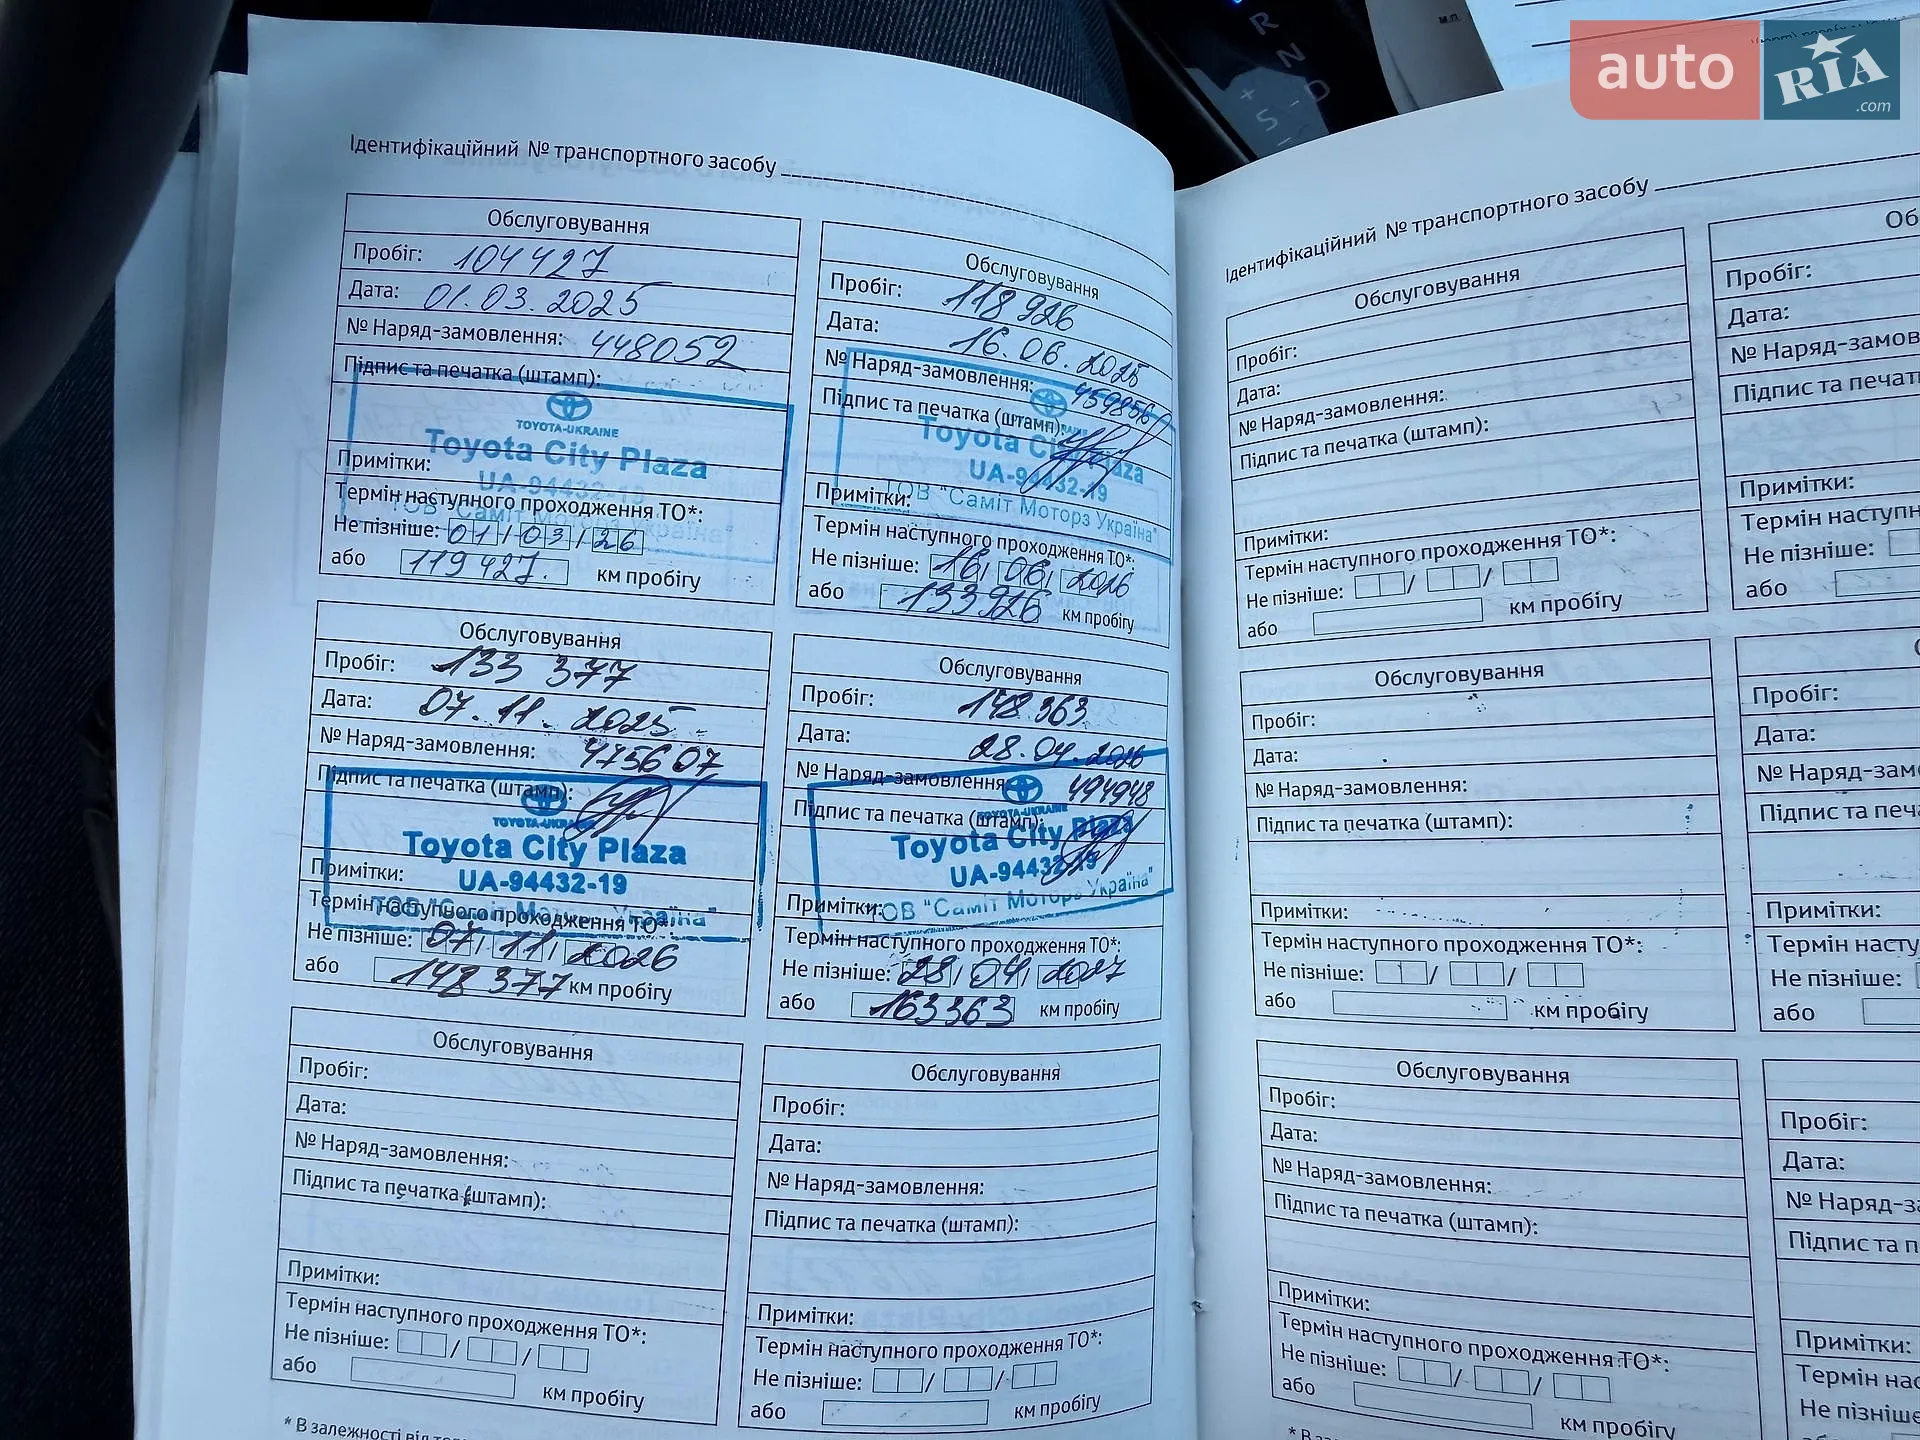 auto RIA .com
R
N
D
+
S
-
м.п.
Ідентифікаційний № транспортного засобу
Обслуговування
Пробіг: 104427
Дата: 01.03.2025
№ Наряд-замовлення: 448052
Підпис та печатка (штамп):
TOYOTA-UKRAINE
Toyota City Plaza
Примітки:
UA-94432-19
Термін наступного проходження ТО*:
ТОВ "Саміт Моторз Україна"
Не пізніше: 01/03/26
або 119427. км пробігу
Обслуговування
Пробіг: 118926
Дата: 16.06.2025
№ Наряд-замовлення: 459856
Підпис та печатка (штамп):
Toyota City Plaza
UA-94432-19
Примітки:
ТОВ "Саміт Моторз Україна"
Термін наступного проходження ТО*:
Не пізніше: 16/06/2026
або 133926 км пробігу
Обслуговування
Пробіг: 133 377
Дата: 07.11.2025
№ Наряд-замовлення: 475607
Підпис та печатка (штамп):
TOYOTA-UKRAINE
Toyota City Plaza
Примітки:
UA-94432-19
Термін наступного проходження ТО*:
ТОВ "Саміт Моторз Україна"
Не пізніше: 07/11/2026
або 148 377 км пробігу
Обслуговування
Пробіг: 148 363
Дата: 28.04.2026
№ Наряд-замовлення: 494948
Підпис та печатка (штамп):
TOYOTA-UKRAINE
Toyota City Plaza
UA-94432-19
Примітки:
ТОВ "Саміт Моторз Україна"
Термін наступного проходження ТО*:
Не пізніше: 28/04/2027
або 163363 км пробігу
Обслуговування
Пробіг:
Дата:
№ Наряд-замовлення:
Підпис та печатка (штамп):
Примітки:
Термін наступного проходження ТО*:
Не пізніше: / /
або км пробігу
Обслуговування
Пробіг:
Дата:
№ Наряд-замовлення:
Підпис та печатка (штамп):
Примітки:
Термін наступного проходження ТО*:
Не пізніше: / /
або км пробігу
* В залежності від
Ідентифікаційний № транспортного засобу
Обслуговування
Пробіг:
Дата:
№ Наряд-замовлення:
Підпис та печатка (штамп):
Примітки:
Термін наступного проходження ТО*:
Не пізніше: / /
або км пробігу
Об
Пробіг:
Дата:
№ Наряд-замов
Підпис та печат
Примітки:
Термін наступн
Не пізніше:
або
Обслуговування
Пробіг:
Дата:
№ Наряд-замовлення:
Підпис та печатка (штамп):
Примітки:
Термін наступного проходження ТО*:
Не пізніше: / /
або км пробігу
Пробіг:
Дата:
№ Наряд-зам
Підпис та печа
Примітки:
Термін насту
Не пізніше:
або
Обслуговування
Пробіг:
Дата:
№ Наряд-замовлення:
Підпис та печатка (штамп):
Примітки:
Термін наступного проходження ТО*:
Не пізніше: / /
або км пробігу
Пробіг:
Дата:
№ Наряд-за
Підпис та п
Примітки:
Термін нас
Не пізніше
* В за